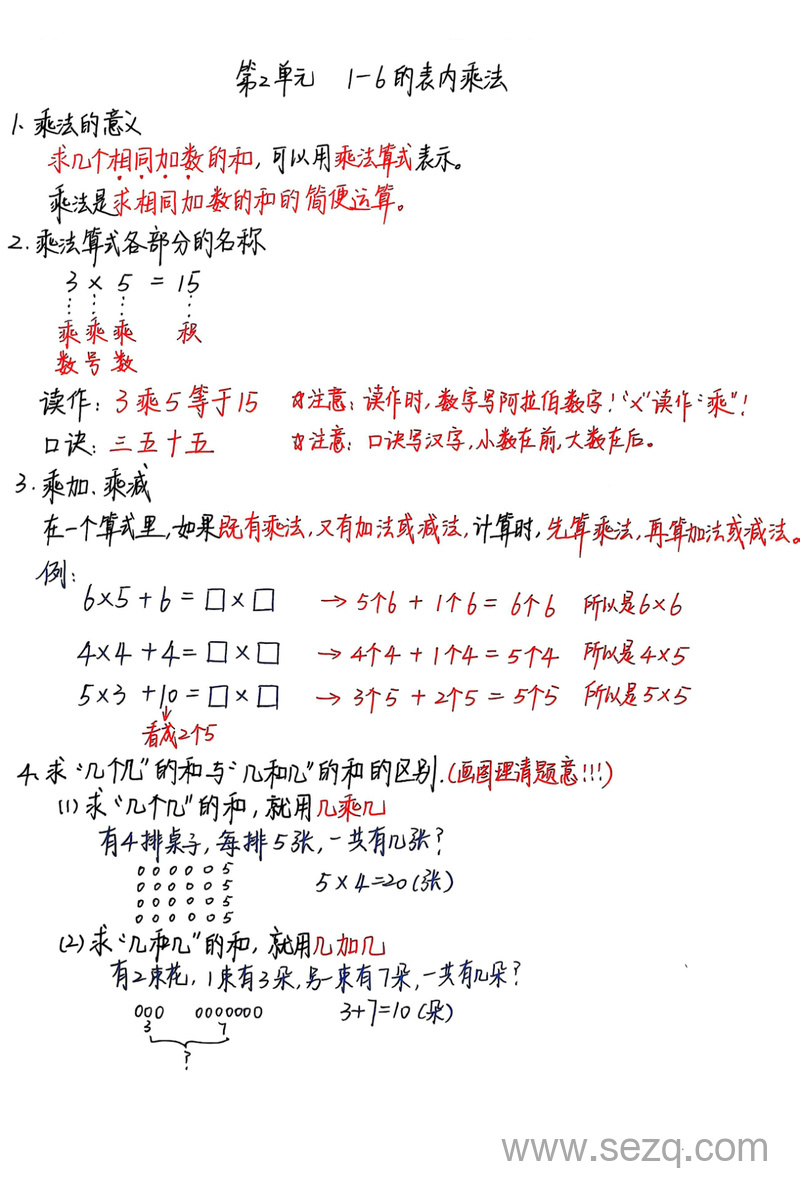 第2单元 1-6的表内乘法
1、乘法的意义
求几个相同加数的和,可以用乘法算式表示。
乘法是求相同加数的和的简便运算。
2.乘法算式各部分的名称
3 × 5 = 15
乘 乘 乘 积
数 号 数
读作: 3乘5等于15 注意: 读作时,数字写阿拉伯数字!“×”读作“乘”!
口诀: 三五十五 注意: 口诀写汉字,小数在前,大数在后。
3.乘加、乘减
在一个算式里,如果既有乘法,又有加法或减法,计算时,先算乘法,再算加法或减法。
例:
6×5+6=□×□ → 5个6 + 1个6 = 6个6 所以是6×6
4×4+4=□×□ → 4个4 + 1个4 = 5个4 所以是4×5
5×3+10=□×□ → 3个5 + 2个5 = 5个5 所以是5×5
看成2个5
4、求“几个几”的和与“几和几”的和的区别.(画图理清题意!!!)
(1)求“几个几”的和,就用几乘几
有4排桌子,每排5张,一共有几张?
0 0 0 0 0 5
0 0 0 0 0 5 5×4=20(张)
0 0 0 0 0 5
0 0 0 0 0 5
(2)求“几和几”的和,就用几加几
有2束花,1束有3朵,另一束有7朵,一共有几朵?
000 0000000 3+7=10(朵)
3 7
?
www.sezq.com